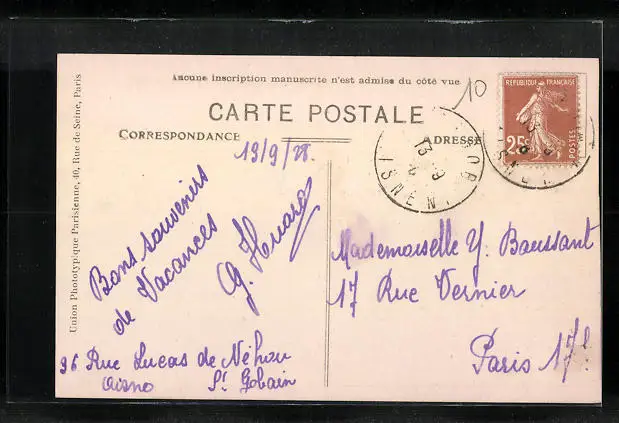 Aucune inscription manuscrite n'est admise du côté vue
CARTE POSTALE
CORRESPONDANCE
ADRESSE
Union Phototypique Parisienne, 40, Rue de Seine, Paris
10
REPUBLIQUE FRANÇAISE
25c
POSTES
13/9/28.
Bons souvenirs
de Vacances
G. Huard
36 Rue Lucas de Néhou
Aisne St Gobain
Mademoiselle Y. Baussant
17 Rue Vernier
Paris 17e